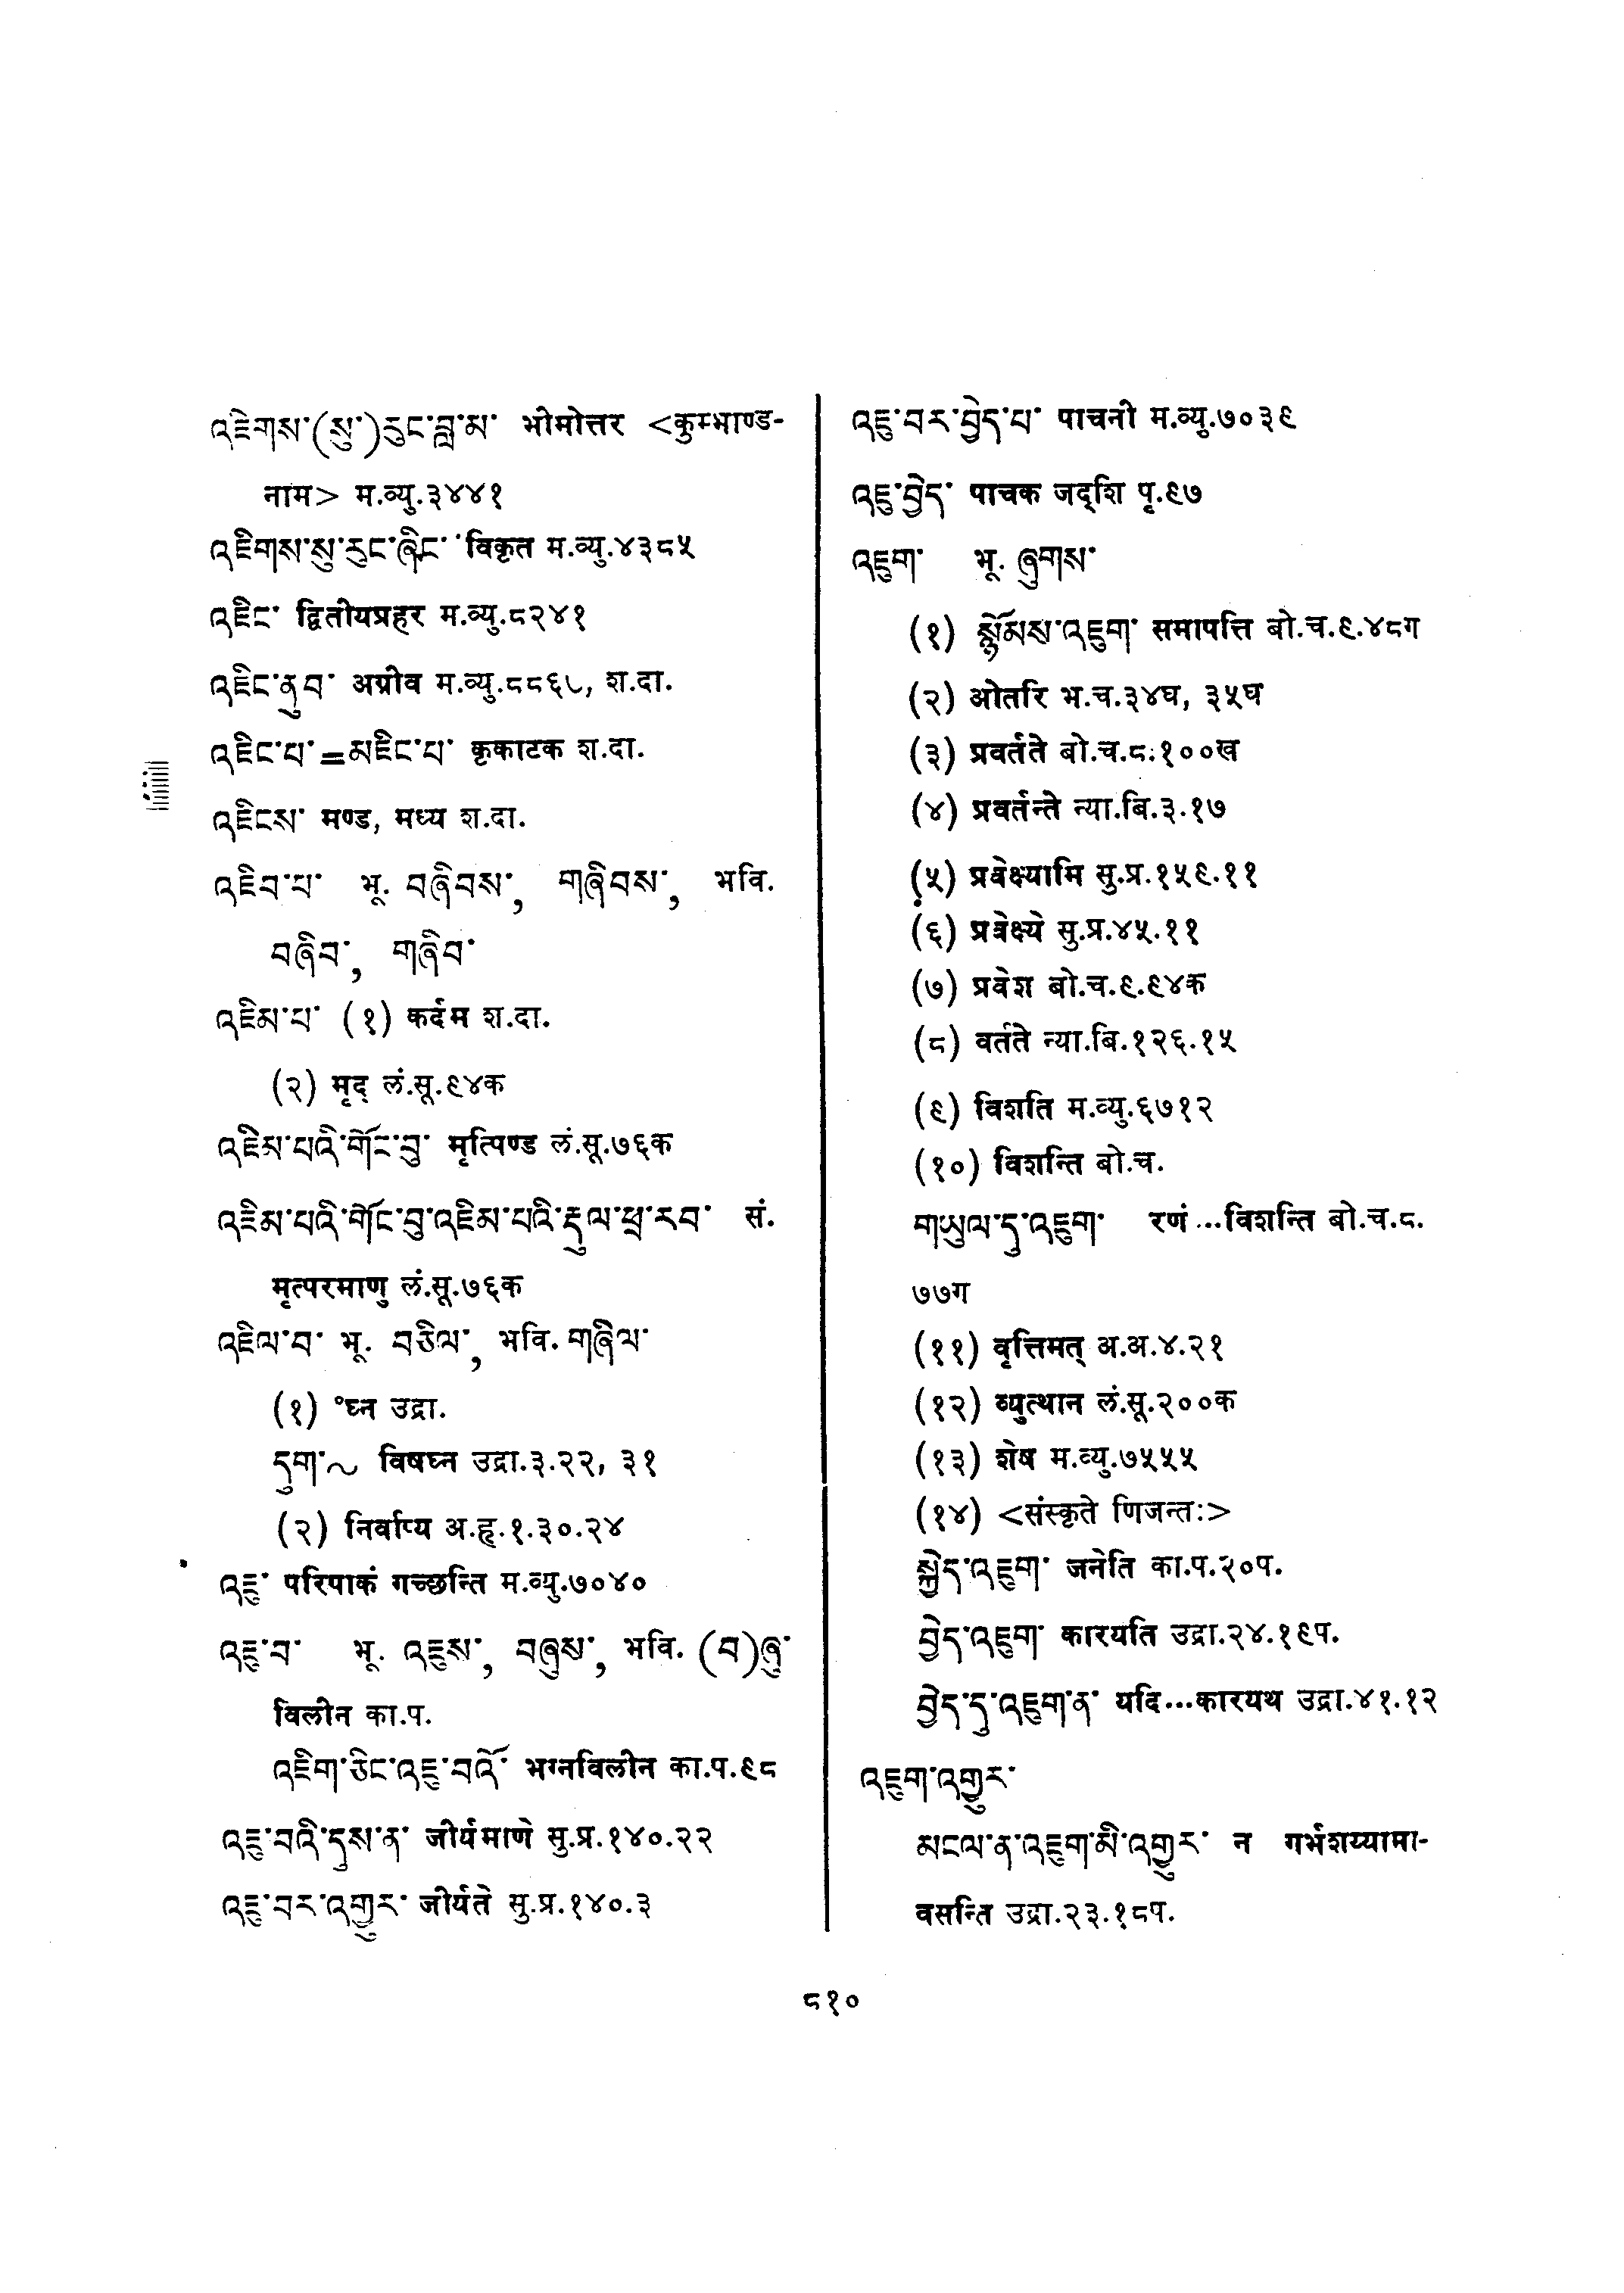 འཇིགས་(སུ་)རུང་བླ་མ་ भीमोत्तर <कुम्भाण्ड-
नाम> म.व्यु.३४४१
འཇིགས་སུ་རུང་ཞིང་ विकृत म.व्यु.४३८५
འཇིང་ द्वितीयप्रहर म.व्यु.८२४१
འཇིང་ནུབ་ अग्रीव म.व्यु.८८६८, श.दा.
འཇིང་པ་=མཇིང་པ་ कृकाटक श.दा.
འཇིངས་ मण्ड, मध्य श.दा.
འཇིབ་པ་ भू. བཞིབས་, གཞིབས་, भवि.
བཞིབ་, གཞིབ་
འཇིམ་པ་ (१) कर्दम श.दा.
(२) मृद् लं.सू.९४क
འཇིམ་པའི་གོང་བུ་ मृत्पिण्ड लं.सू.७६क
འཇིམ་པའི་གོང་བུ་འཇིམ་པའི་རྡུལ་ཕྲ་རབ་ सं.
मृत्परमाणु लं.सू.७६क
འཇིལ་བ་ भू. བཅིལ་, भवि. གཞིལ་
(१) °घ्न उद्रा.
དུག་~ विषघ्न उद्रा.३.२२, ३१
(२) निर्वाप्य अ.हृ.१.३०.२४
འཇུ་ परिपाकं गच्छन्ति म.व्यु.७०४०
འཇུ་བ་ भू. འཇུས་, བཞུས་, भवि. (བ)ཞུ་
विलीन का.प.
འཇིག་ཅིང་འཇུ་བའོ་ भग्नविलीन का.प.९८
འཇུ་བའི་དུས་ན་ जीर्यमाणे सु.प्र.१४०.२२
འཇུ་བར་འགྱུར་ जीर्यते सु.प्र.१४०.३
འཇུ་བར་བྱེད་པ་ पाचनी म.व्यु.७०३९
འཇུ་བྱེད་ पाचक जद्शि पृ.९७
འཇུག་ भू. ཞུགས་
(१) སྙོམས་འཇུག་ समापत्ति बो.च.९.४८ग
(२) ओतरि भ.च.३४घ, ३५घ
(३) प्रवर्तते बो.च.८.१००ख
(४) प्रवर्तन्ते न्या.बि.३.१७
(५) प्रवेक्ष्यामि सु.प्र.१५९.११
(६) प्रवेक्ष्ये सु.प्र.४५.११
(७) प्रवेश बो.च.९.९४क
(८) वर्तते न्या.बि.१२६.१५
(९) विशति म.व्यु.६७१२
(१०) विशन्ति बो.च.
གཡུལ་དུ་འཇུག་ रणं...विशन्ति बो.च.८.
७७ग
(११) वृत्तिमत् अ.अ.४.२१
(१२) व्युत्थान लं.सू.२००क
(१३) शेष म.व्यु.७५५५
(१४) <संस्कृते णिजन्तः>
སྐྱེད་འཇུག་ जनेति का.प.२०प.
བྱེད་འཇུག་ कारयति उद्रा.२४.१९प.
བྱེད་དུ་འཇུག་ན་ यदि...कारयथ उद्रा.४१.१२
འཇུག་འགྱུར་
མངལ་ན་འཇུག་མི་འགྱུར་ न गर्भशय्यामा-
वसन्ति उद्रा.२३.१८प.
८१०